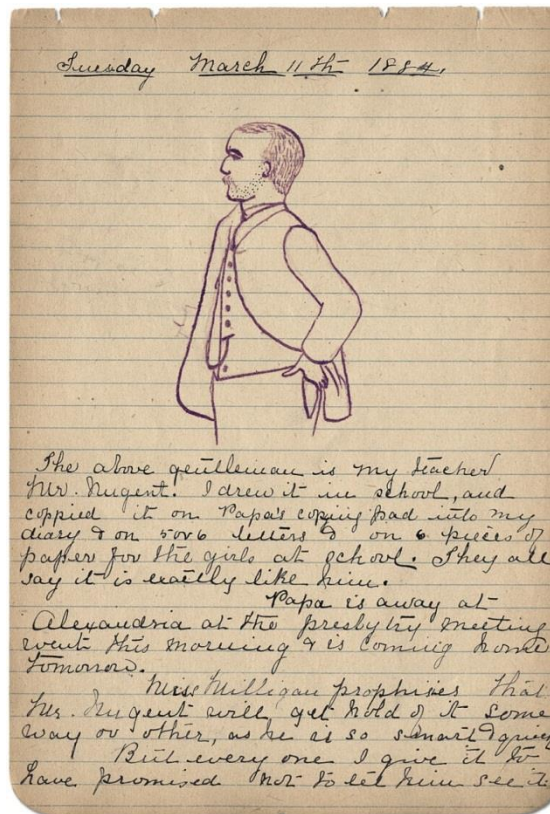 Tuesday March 11th 1884.
The above gentleman is my teacher
Mr. Nugent. I drew it in school, and
coppied it on Papa's copying pad into my
diary & on 5 or 6 letters & on 6 pieces of
paper for the girls at school. They all
say it is exactly like him.
Papa is away at
Alexandria at the presbytry meeting
went this morning & is coming home
tomorrow.
Miss Milligan prophises that
Mr. Nugent will get hold of it some
way or other, as he is so smart &
But every one I give it to
have promised not to let him see it